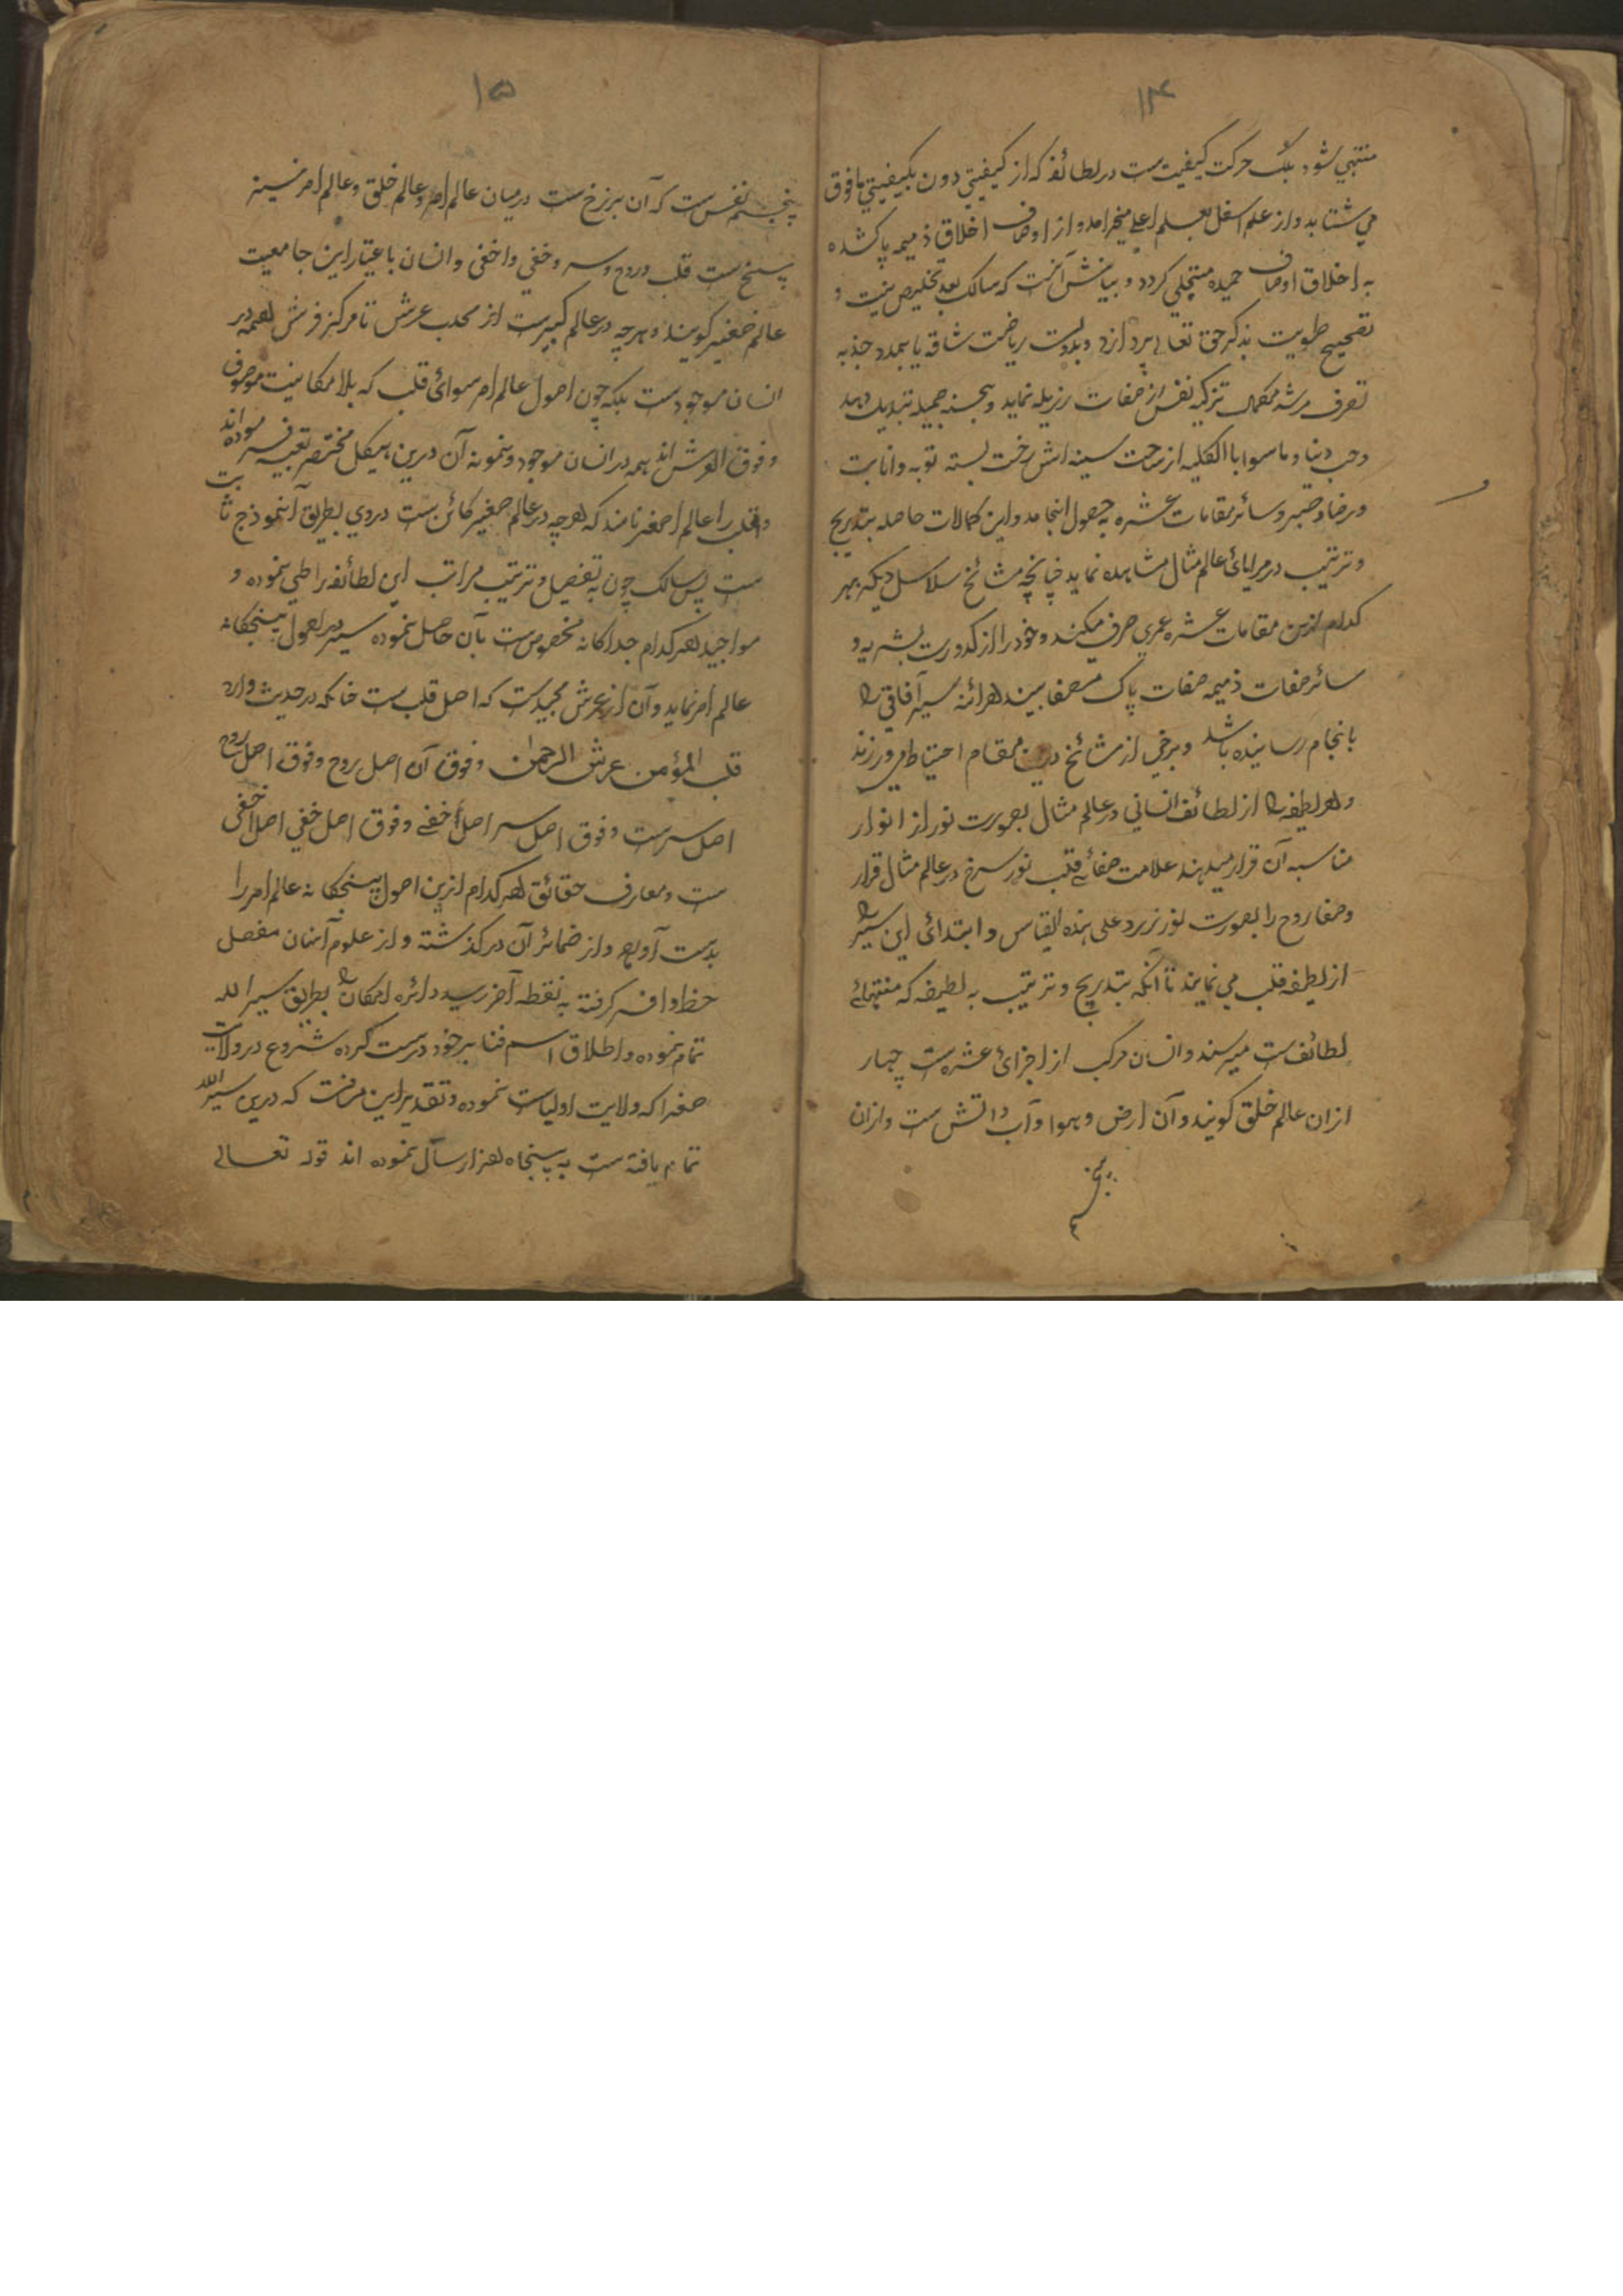 ۱۴
منتهی شود بلکه حرکت کیفیت ست در لطائف که از کیفیتی دون بکیفیتی ما فوق
می شتابد و از علم اسفل بعلم اعلی میخرامد و از اوصاف اخلاق ذمیمه پاک شده
به اخلاق اوصاف حمیده متجلی کردد و بیانش آنست که سالک بعد تخلیص نیت و
تصحیح طویت بذکر حق تعالی پردازد و بدست ریاضت شاقه یا بمدد جذبه
تصرف مرشد مکمل تزکیه نفس از صفات رزیله نماید و بحسنه جمیله تبدیل دهد
و حب دنیا و ما سوا بالکلیه از ساحت سینه اش رخت بسته توبه و انابت
و رضا و صبر و سائر مقامات عشره به حصول انجامد و این کمالات حاصله بتدریج
و ترتیب در مرایائ عالم مثال مشاهده نماید چنانچه مشائخ سلاسل دیکر بهر
کدام ازین مقامات عشره عمری صرف میکنند و خود را از کدورت بشریه و
سائر صفات ذمیمه صفات پاک مصفا بیند هرائنه سیر آفاقی را
بانجام رسانیده باشد و برخی از مشائخ درین مقام احتیاط می ورزند
و هر لطیفه را از لطائف انسانی در عالم مثال بصورت نور از انوار
مناسبه آن قرار میدهند علامت صفائی قلب نور سرخ در عالم مثال قرار
و صفا روح را بصورت نور زرد علی هذه القیاس و ابتدائ این سیر را
از لطیفه قلب می نمایند تا آنکه بتدریج و ترتیب به لطیفه که منتهائے
لطائف ست میرسند و انسان مرکب از اجزائ عشره ست چهار
ازان عالم خلق کویند و آن ارض و هوا و آب و اتش ست و ازان
پنجم
۱۵
پنجم نفس ست که آن برزخ ست درمیان عالم امر و عالم خلق و عالم امر نسینه
پنج ست قلب و روح و سر و خفی و اخفی و انسان با عتبار این جامعیت
عالم صغیر کویند و هر چه در عالم کبیر ست از محدب عرش تا مرکز فرش همه در
انسان موجود ست بلکه چون اصول عالم امر سوائ قلب که بلا مکانیت موصوف
و فوق العرش اند همه در انسان موجود و نمونه آن درین هیکل مختصر تعبیه فرموده اند
و قلب را عالم اصغر نامند که هر چه در عالم صغیر کائن ست در وی بطریق انموذج ثابت
ست پس سالک چون به تفصیل و ترتیب مراتب این لطائف را طی نموده و
مواجید هر کدام جداکانه مخصوص ست بآن حاصل نموده سیر در اصول پنجکانه
عالم امر نماید و آن از عرش مجید ست که اصل قلب ست چنانکه در حدیث وارد
قلب المؤمن عرش الرحمٰن و فوق آن اصل روح و فوق اصل روح
اصل سر ست و فوق اصل سر اصل أخفے و فوق اصل خفی اصل اخفی
ست و معارف حقائق هر کدام ازین اصول پنجکانه عالم امر را
بدست آورد و از ضمائر آن در کذشته و از علوم آنان مفصل
حظ وافر کرفته به نقطه آخر رسید دائره امکان را بطریق سیر الله
تمام نموده و اطلاق اسم فنا بر خود درست کرده شروع در ولایت
صغرا که ولایت اولیاست نموده و تقدیر این مرفت که درین سیر الله
تمام یافته ست به پنجاه هزار سال نموده اند قوله تعالی